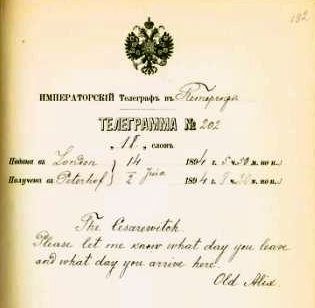 182
ИМПЕРАТОРСКІЙ Телеграфъ въ
ТЕЛЕГРАММА № 202
„ 18 „ словъ
Подана въ London 14 1894 г. 5 ч. м. по п.
Получена въ Peterhof 2 1894 м. по п.
The Cesarewitch
Please let me know what day you leave
and what day you arrive here.
Old Alix